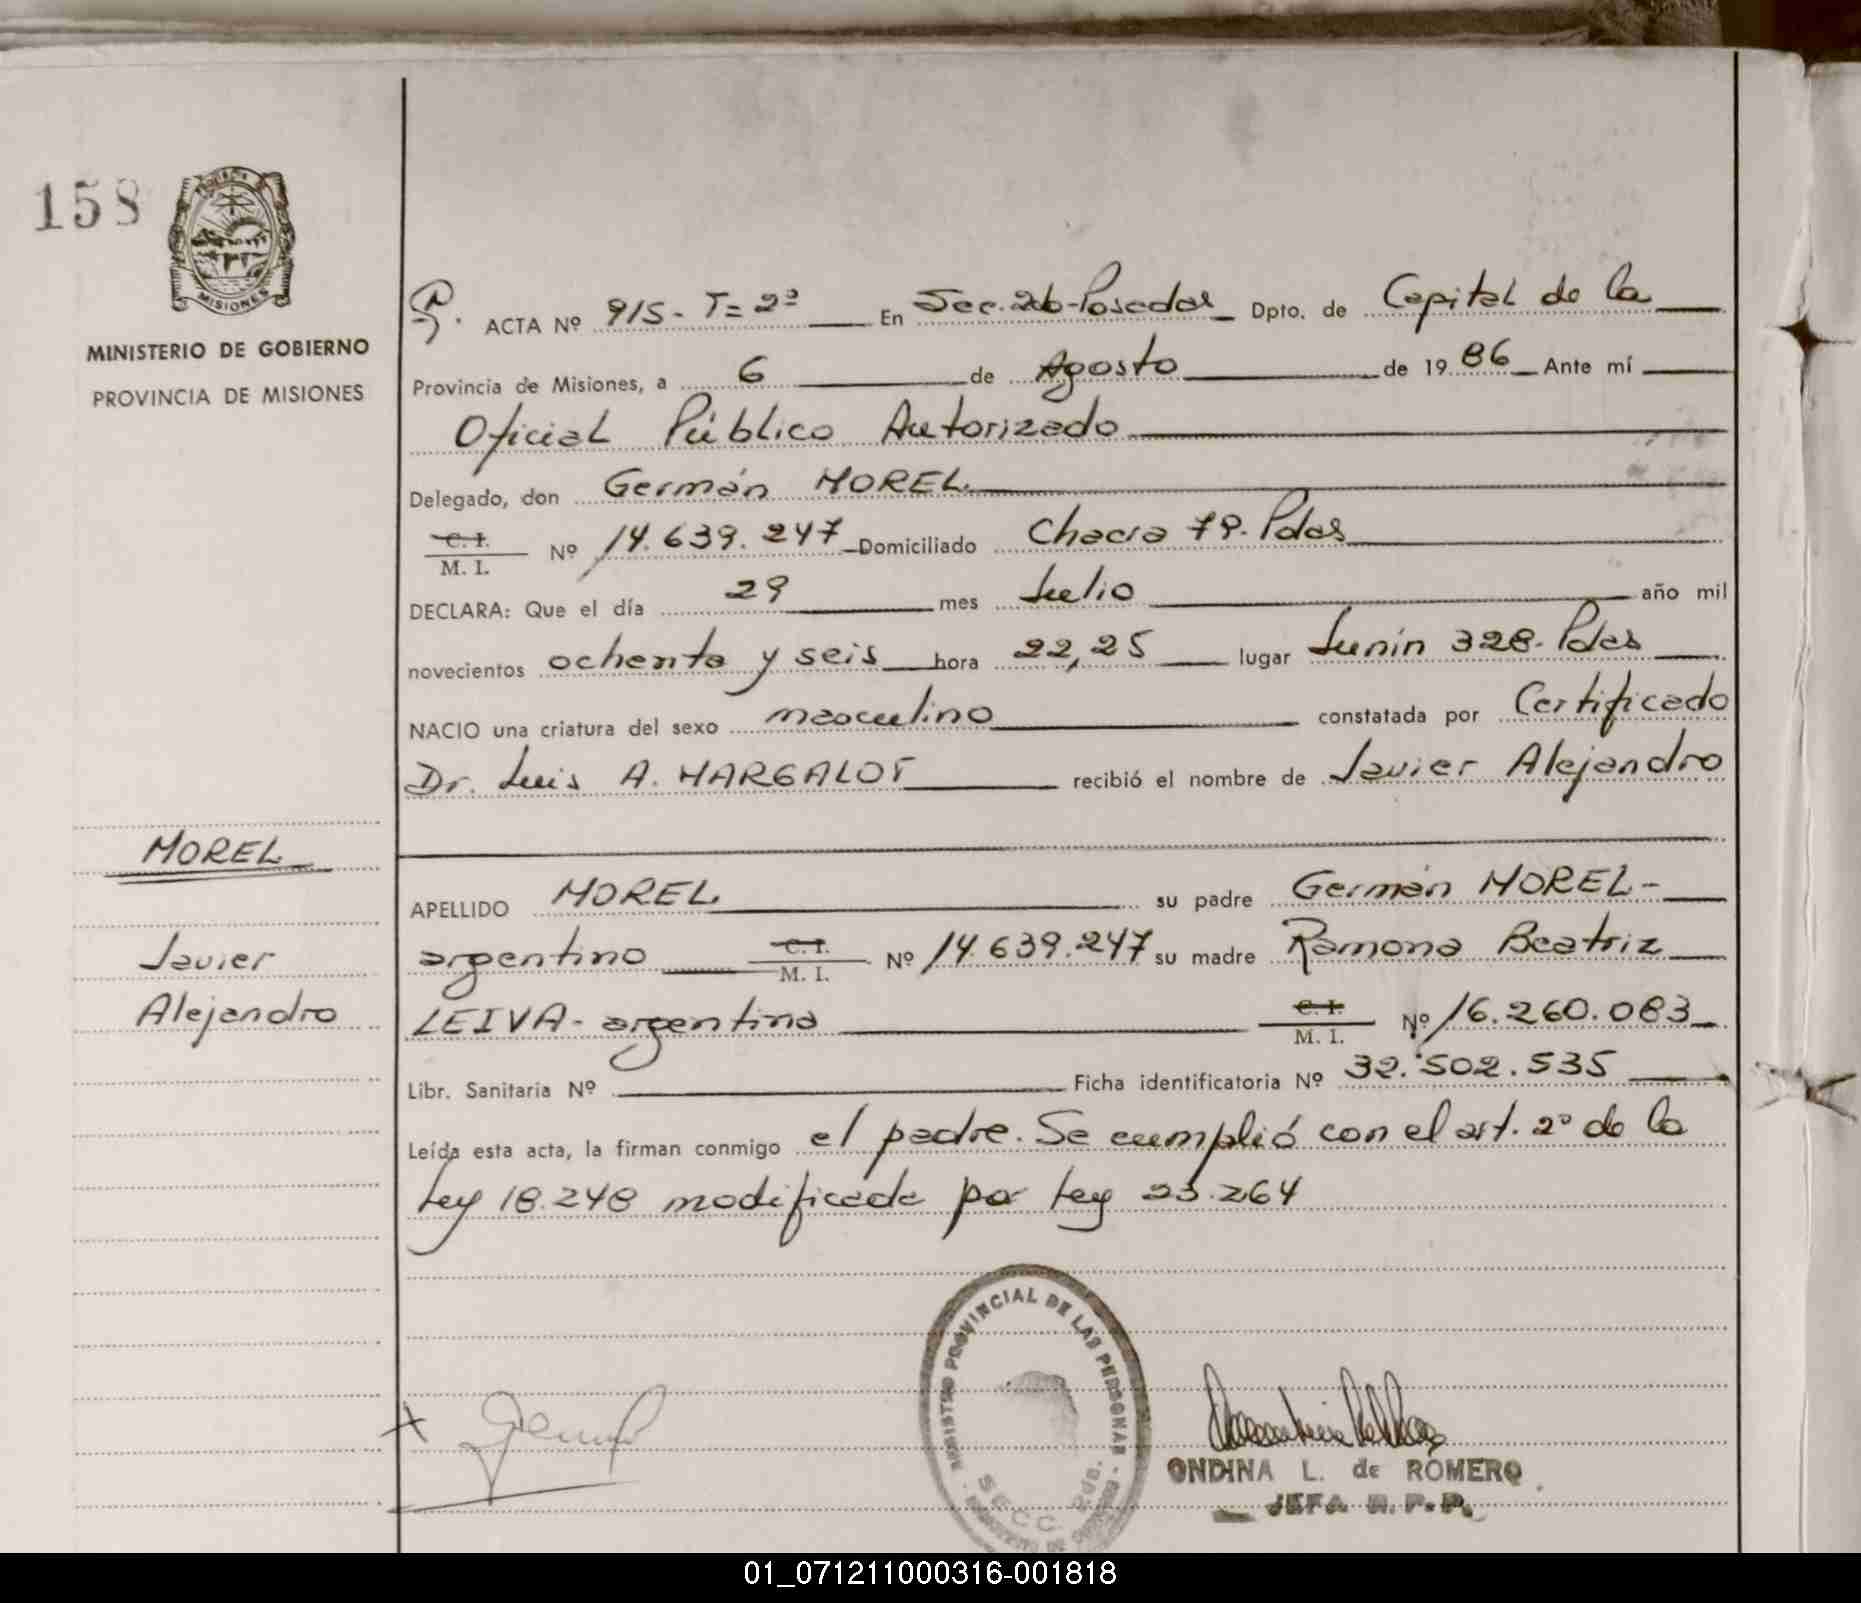 158
MISIONES
MINISTERIO DE GOBIERNO
PROVINCIA DE MISIONES
ACTA Nº 915- T=2º En Sec. 2ª b-Posadas Dpto. de Capital de la
Provincia de Misiones, a 6 de Agosto de 1986 Ante mí
Oficial Público Autorizado
Delegado, don Germán MOREL
C. I.
M. I. Nº 14.639.247 Domiciliado Chacra 79. Pdas
DECLARA: Que el día 29 mes Julio año mil
novecientos ochenta y seis hora 22,25 lugar Junín 328. Pdas
NACIO una criatura del sexo masculino constatada por Certificado
Dr. Luis A. MARGALOT recibió el nombre de Javier Alejandro
MOREL
Javier
Alejandro
APELLIDO MOREL su padre Germán MOREL-
argentino C. I. M. I. Nº 14.639.247 su madre Ramona Beatriz
LEIVA- argentina C. I. M. I. Nº 16.260.083
Libr. Sanitaria Nº Ficha identificatoria Nº 32.502.535
Leída esta acta, la firman conmigo el padre. Se cumplió con el art. 2º de la
Ley 18.248 modificada por Ley 23.264
REGISTRO PROVINCIAL DE LAS PERSONAS
SECC. Pds.
ONDINA L. de ROMERO
JEFA R. P. P.
01_071211000316-001818